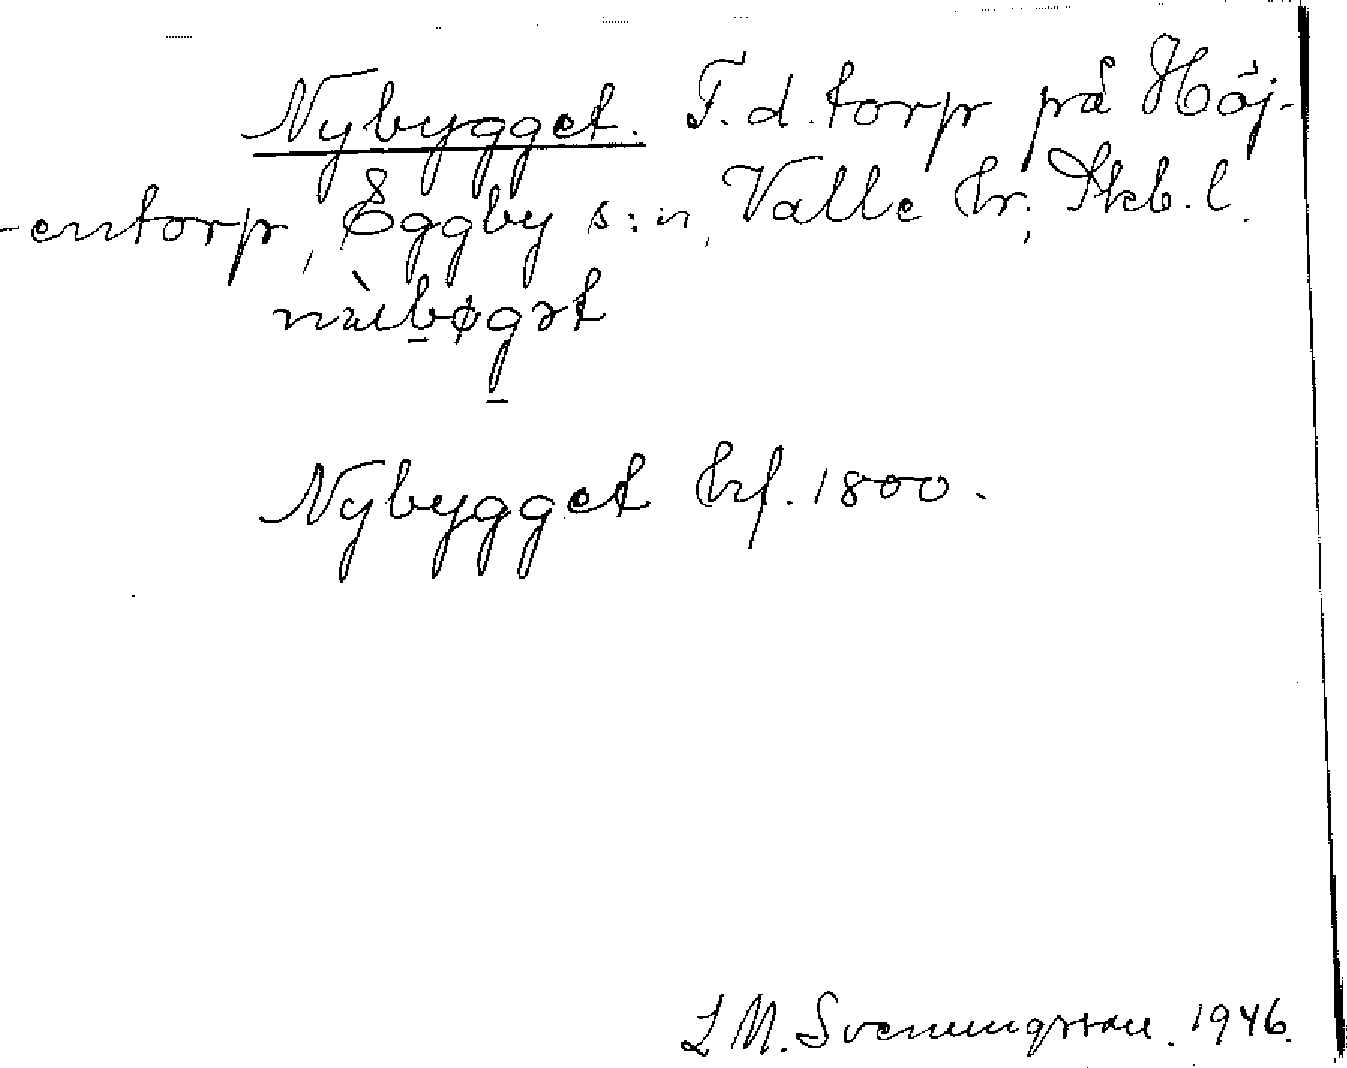 Nybygget. F.d. torp på Höj-
-entorp, Eggby s:n, Valle hr, Skb.l.
Nybygget hrf. 1800.
L M. Svenungsson. 1946.